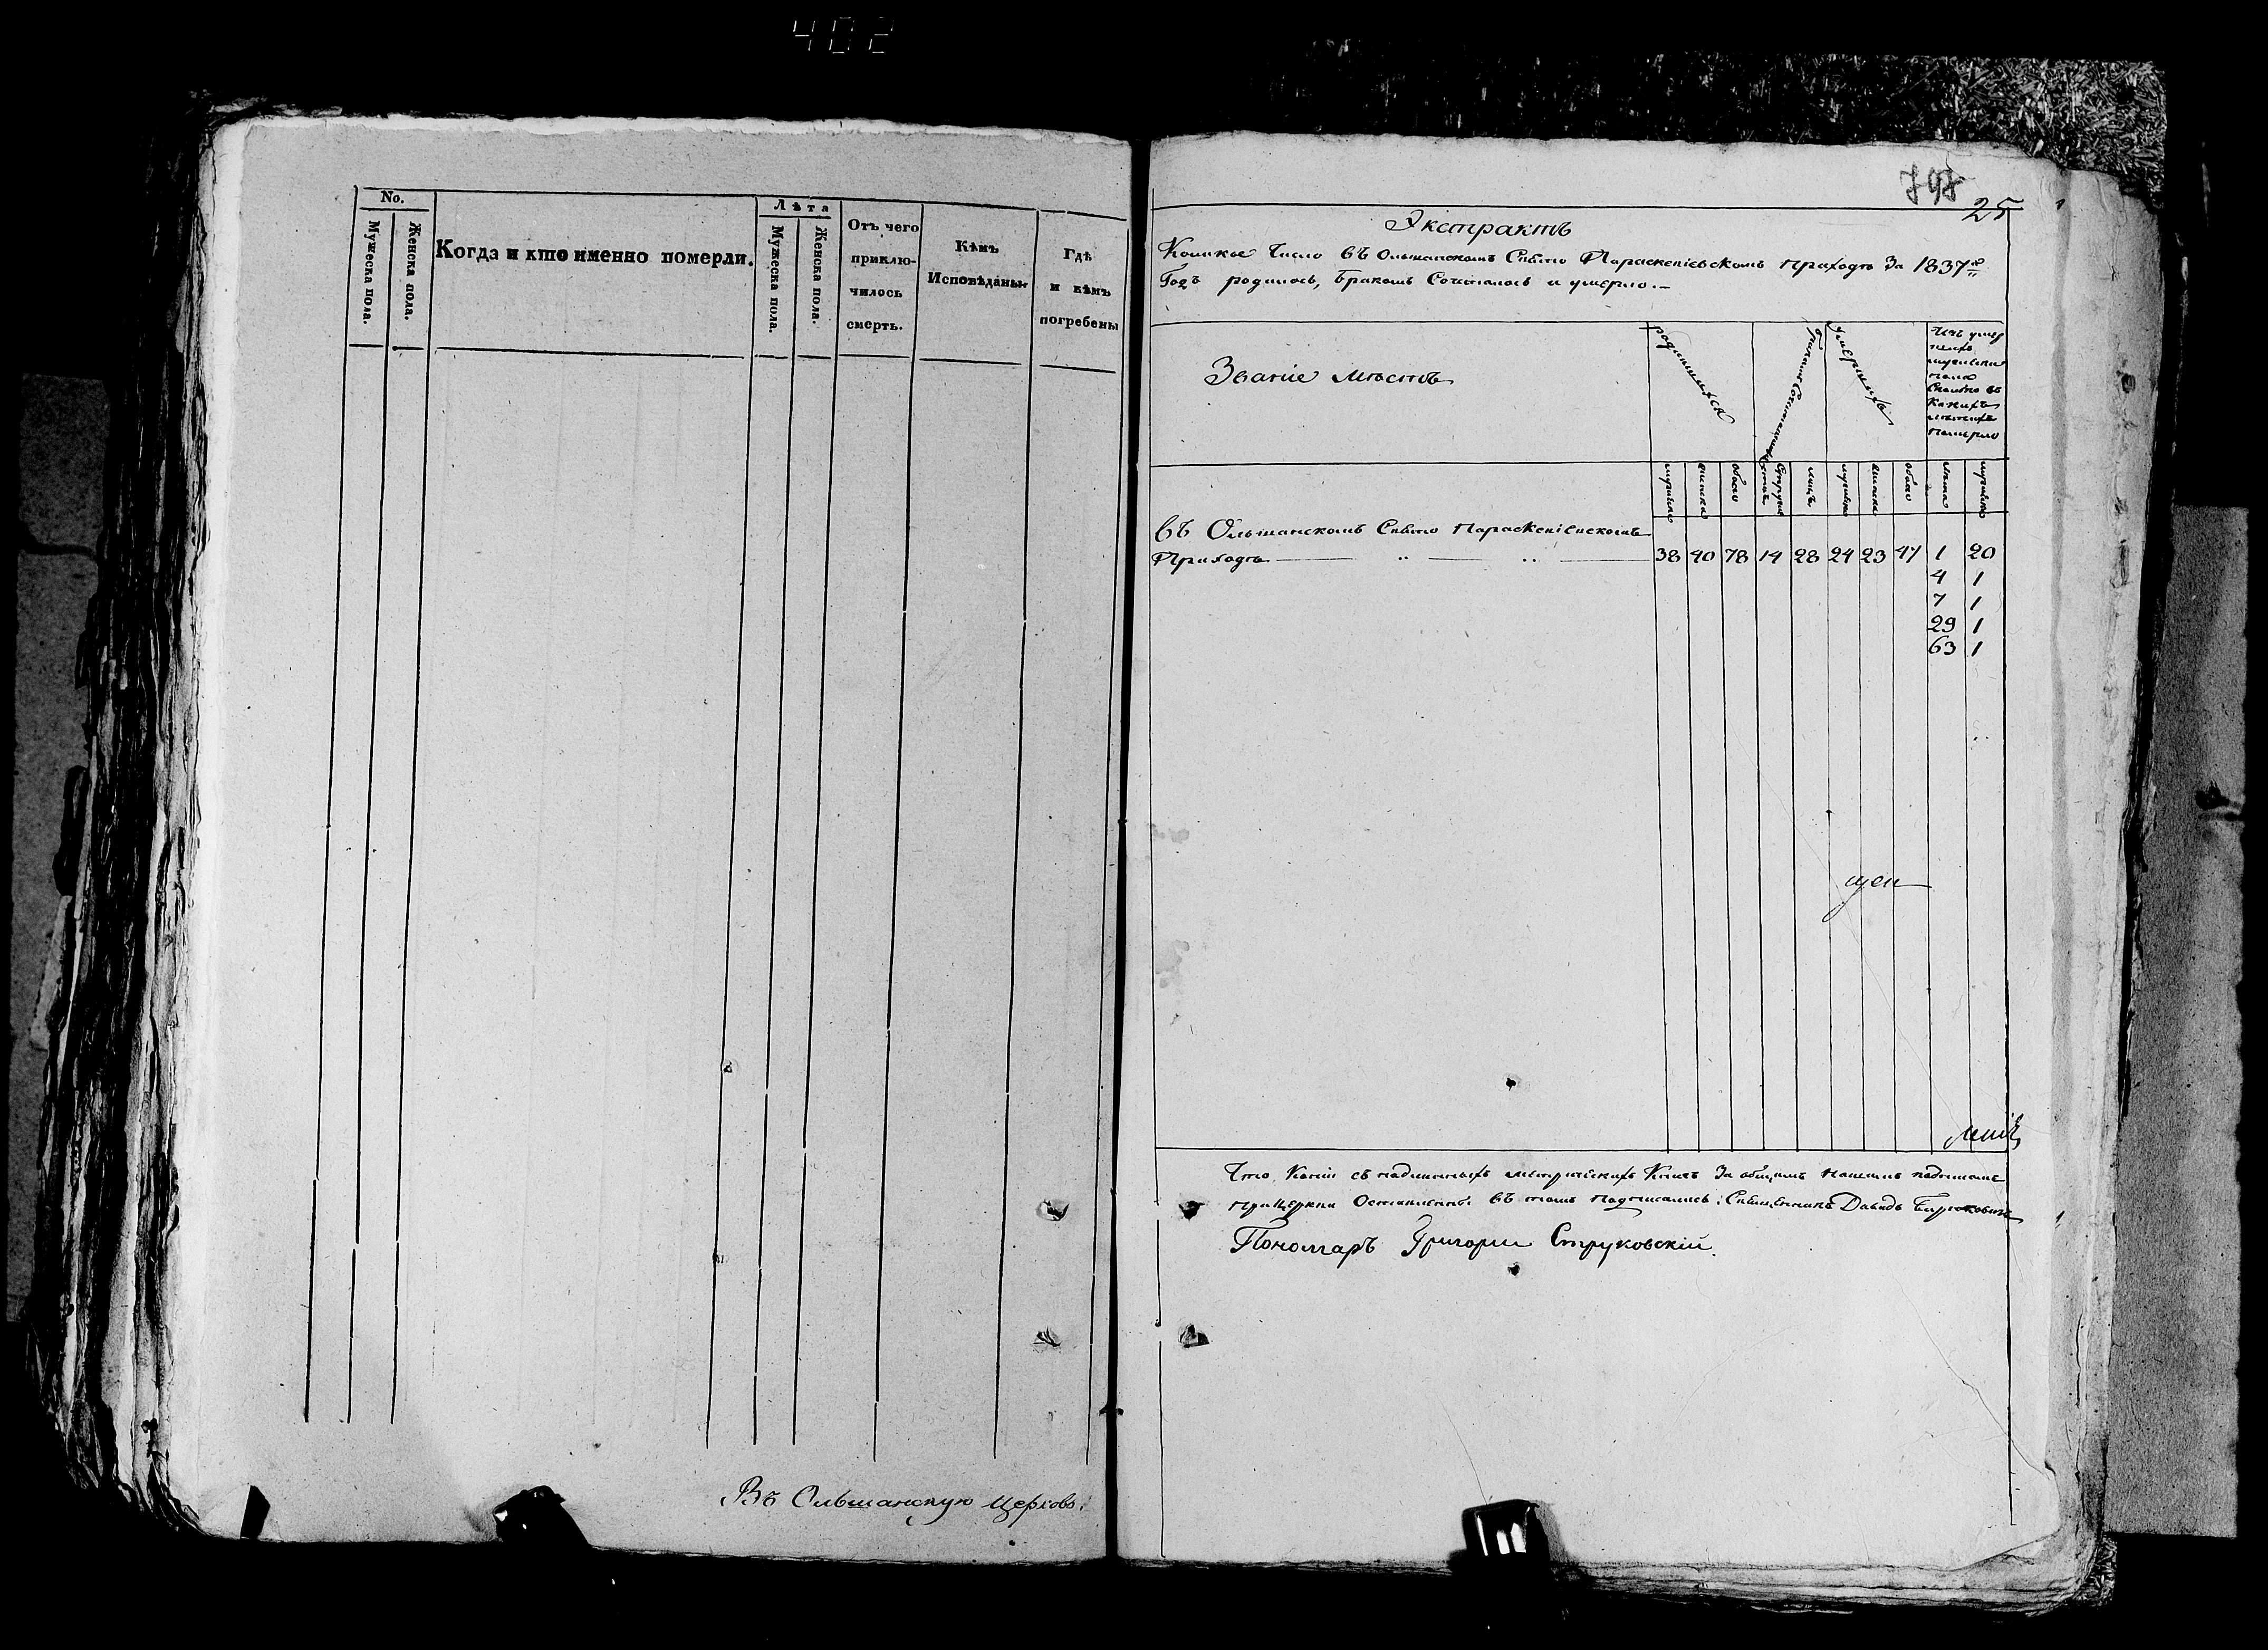 402
No.
Мужеска пола.
Женска пола.
Когда и кто именно померли.
Лѣта
Мужеска пола.
Женска пола.
Отъ чего
приклю-
чилось
смерть.
Кѣмъ
Исповѣданы
Гдѣ
и кѣмъ
погребены
Въ Ольшанскую церковь.
797
25
Экстрактъ
Коликое Число въ Ольшанскомъ Свято Параскевіевскомъ приходѣ За 1837й
Годъ родилось, бракомъ Сочеталось и умерло.
Званіе мѣстъ
родившихся
бракомъ Сочетавшихся
умершихъ
Изъ умер
шихъ
мужеска
пола
Сколько въ
Какихъ
лѣтахъ
померло
мужеска
женска
обоего
Супруже
лицъ
мужеска
женска
обоего
лѣта
мужеска
въ Ольшанскомъ Свято Параскевіевскомъ
Приходѣ 38 40 78 14 28 24 23 47 1 20
4 1
7 1
29 1
63 1
щен
Что Копіи съ подлинныхъ метрическихъ Книгъ За общимъ нашимъ подписомъ
при Церкви Оставлены въ томъ подписались: Священникъ Давидъ
Пономаръ Григории Струковскій.